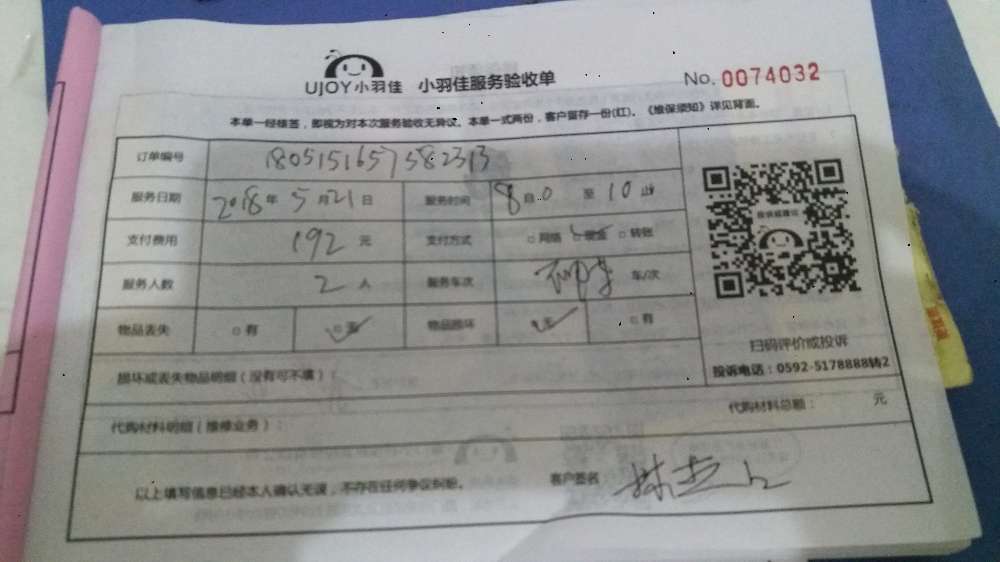 UJOY小羽佳 小羽佳服务验收单 No. 0074032
本单一经核签，即视为对本次服务验收无异议。本单一式两份，客户留存一份(红)。《维保须知》详见背面。
订单编号 180515165738 2313
服务日期 2018年 5月21日 服务时间 8自0 至 10
支付费用 192 元 支付方式 □网络 □现金 □转账
服务人数 2 人 服务车次 车/次
物品丢失 □有 □无 物品损坏 □无 □有
扫码评价或投诉
投诉电话：0592-5178888转2
损坏或丢失物品明细（没有可不填）：
代购材料明细（维修业务）： 代购材料总额： 元
以上填写信息已经本人确认无误，不存在任何争议纠纷。 客户签名